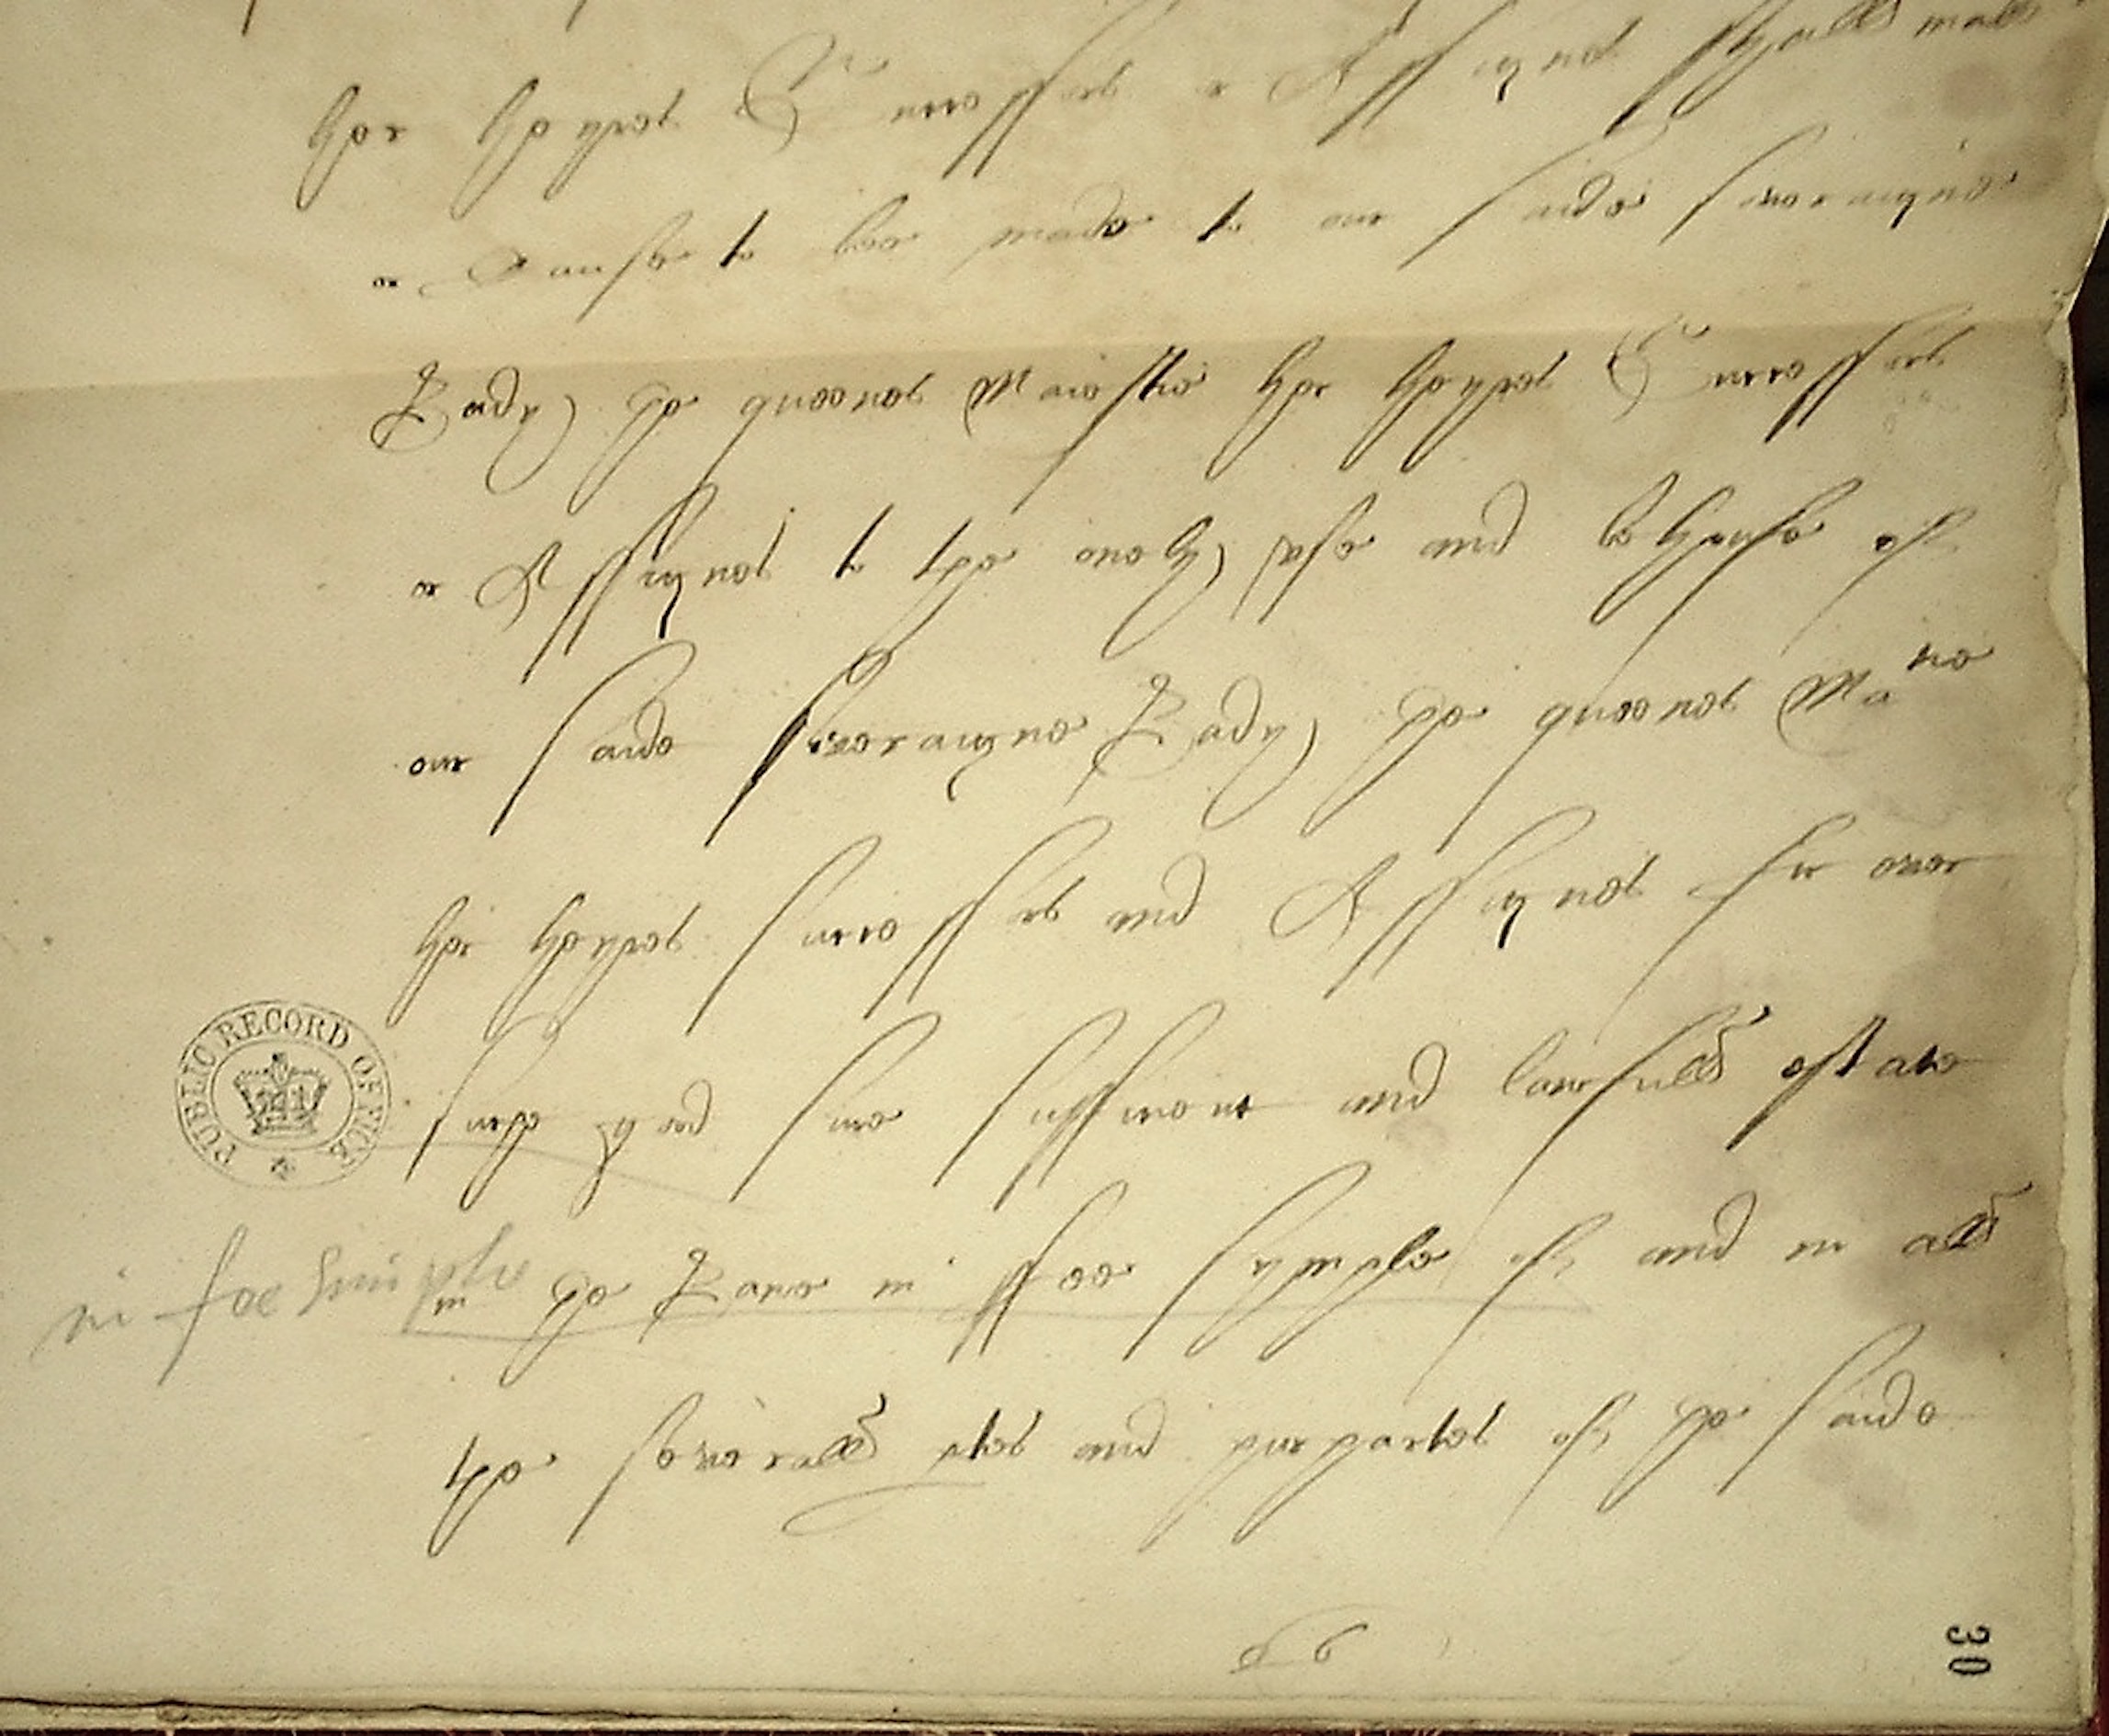 her heyres Successors or Assignes shall make
or Cause to bee made to our saide soveraigne
Lady the queenes Maiestie her heyres Successors
or Assignes to the onely vse and behoufe of
our saide soveraigne Lady the queenes Ma tie
her heyres successors and Assignes for ever
suche good sure sufficient and lawfull estate
in the Lawe in ffee symple of and in all
in fee simple
the severall ptes and purpartes of the saide
66
30
PUBLIC RECORD OFFICE